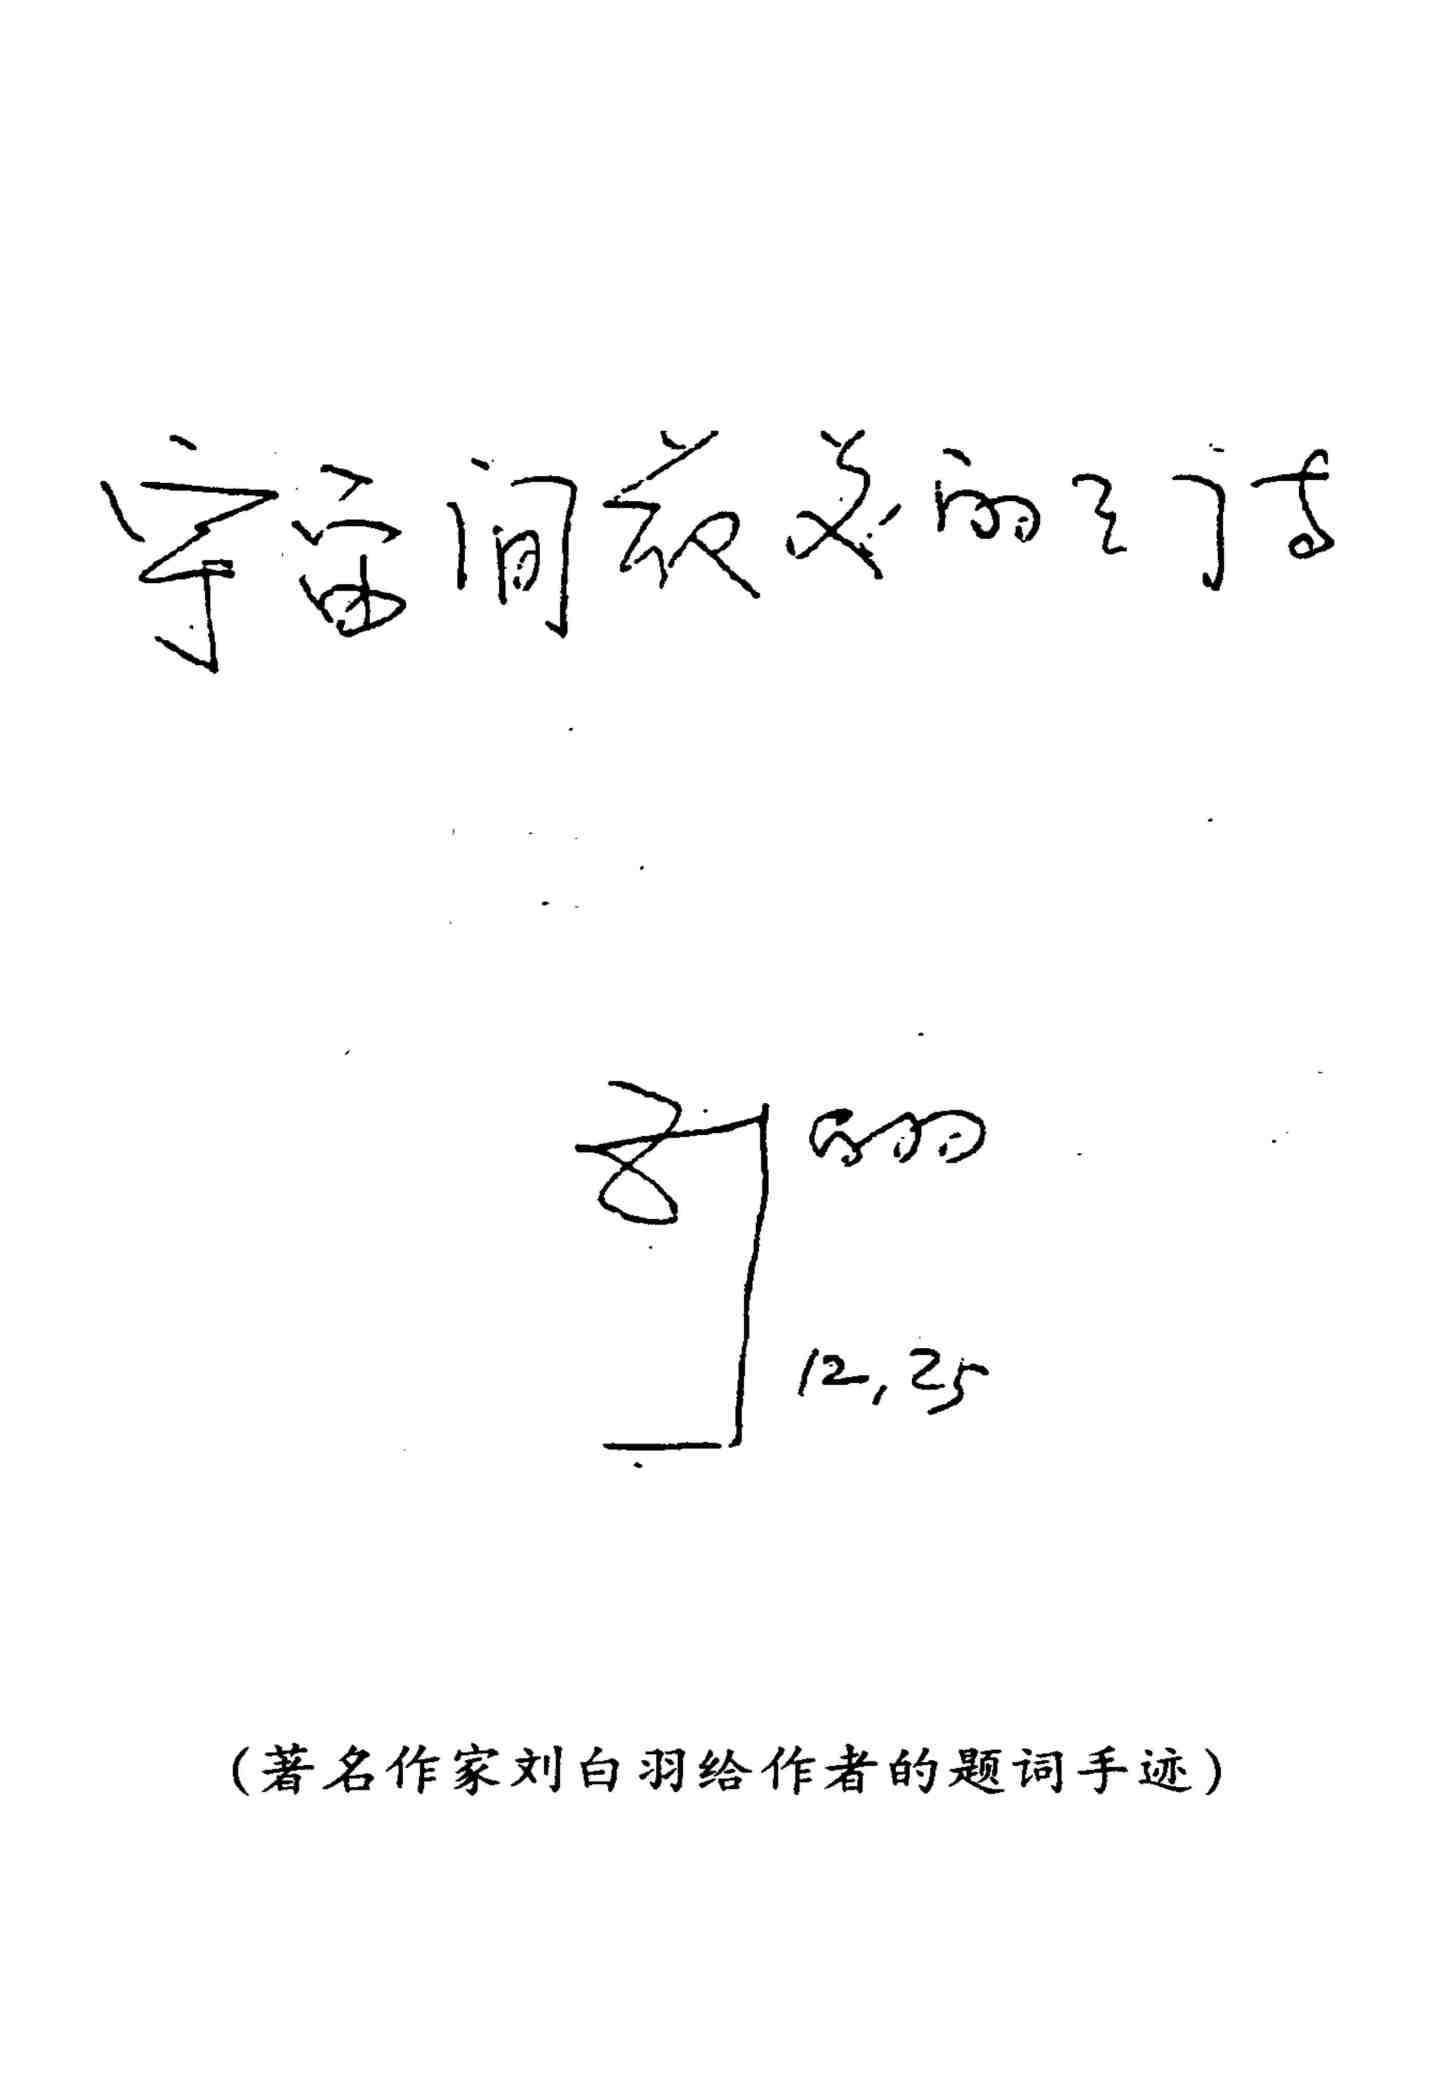 宇宙间最美的是诗
刘白羽
12,25
(著名作家刘白羽给作者的题词手迹)